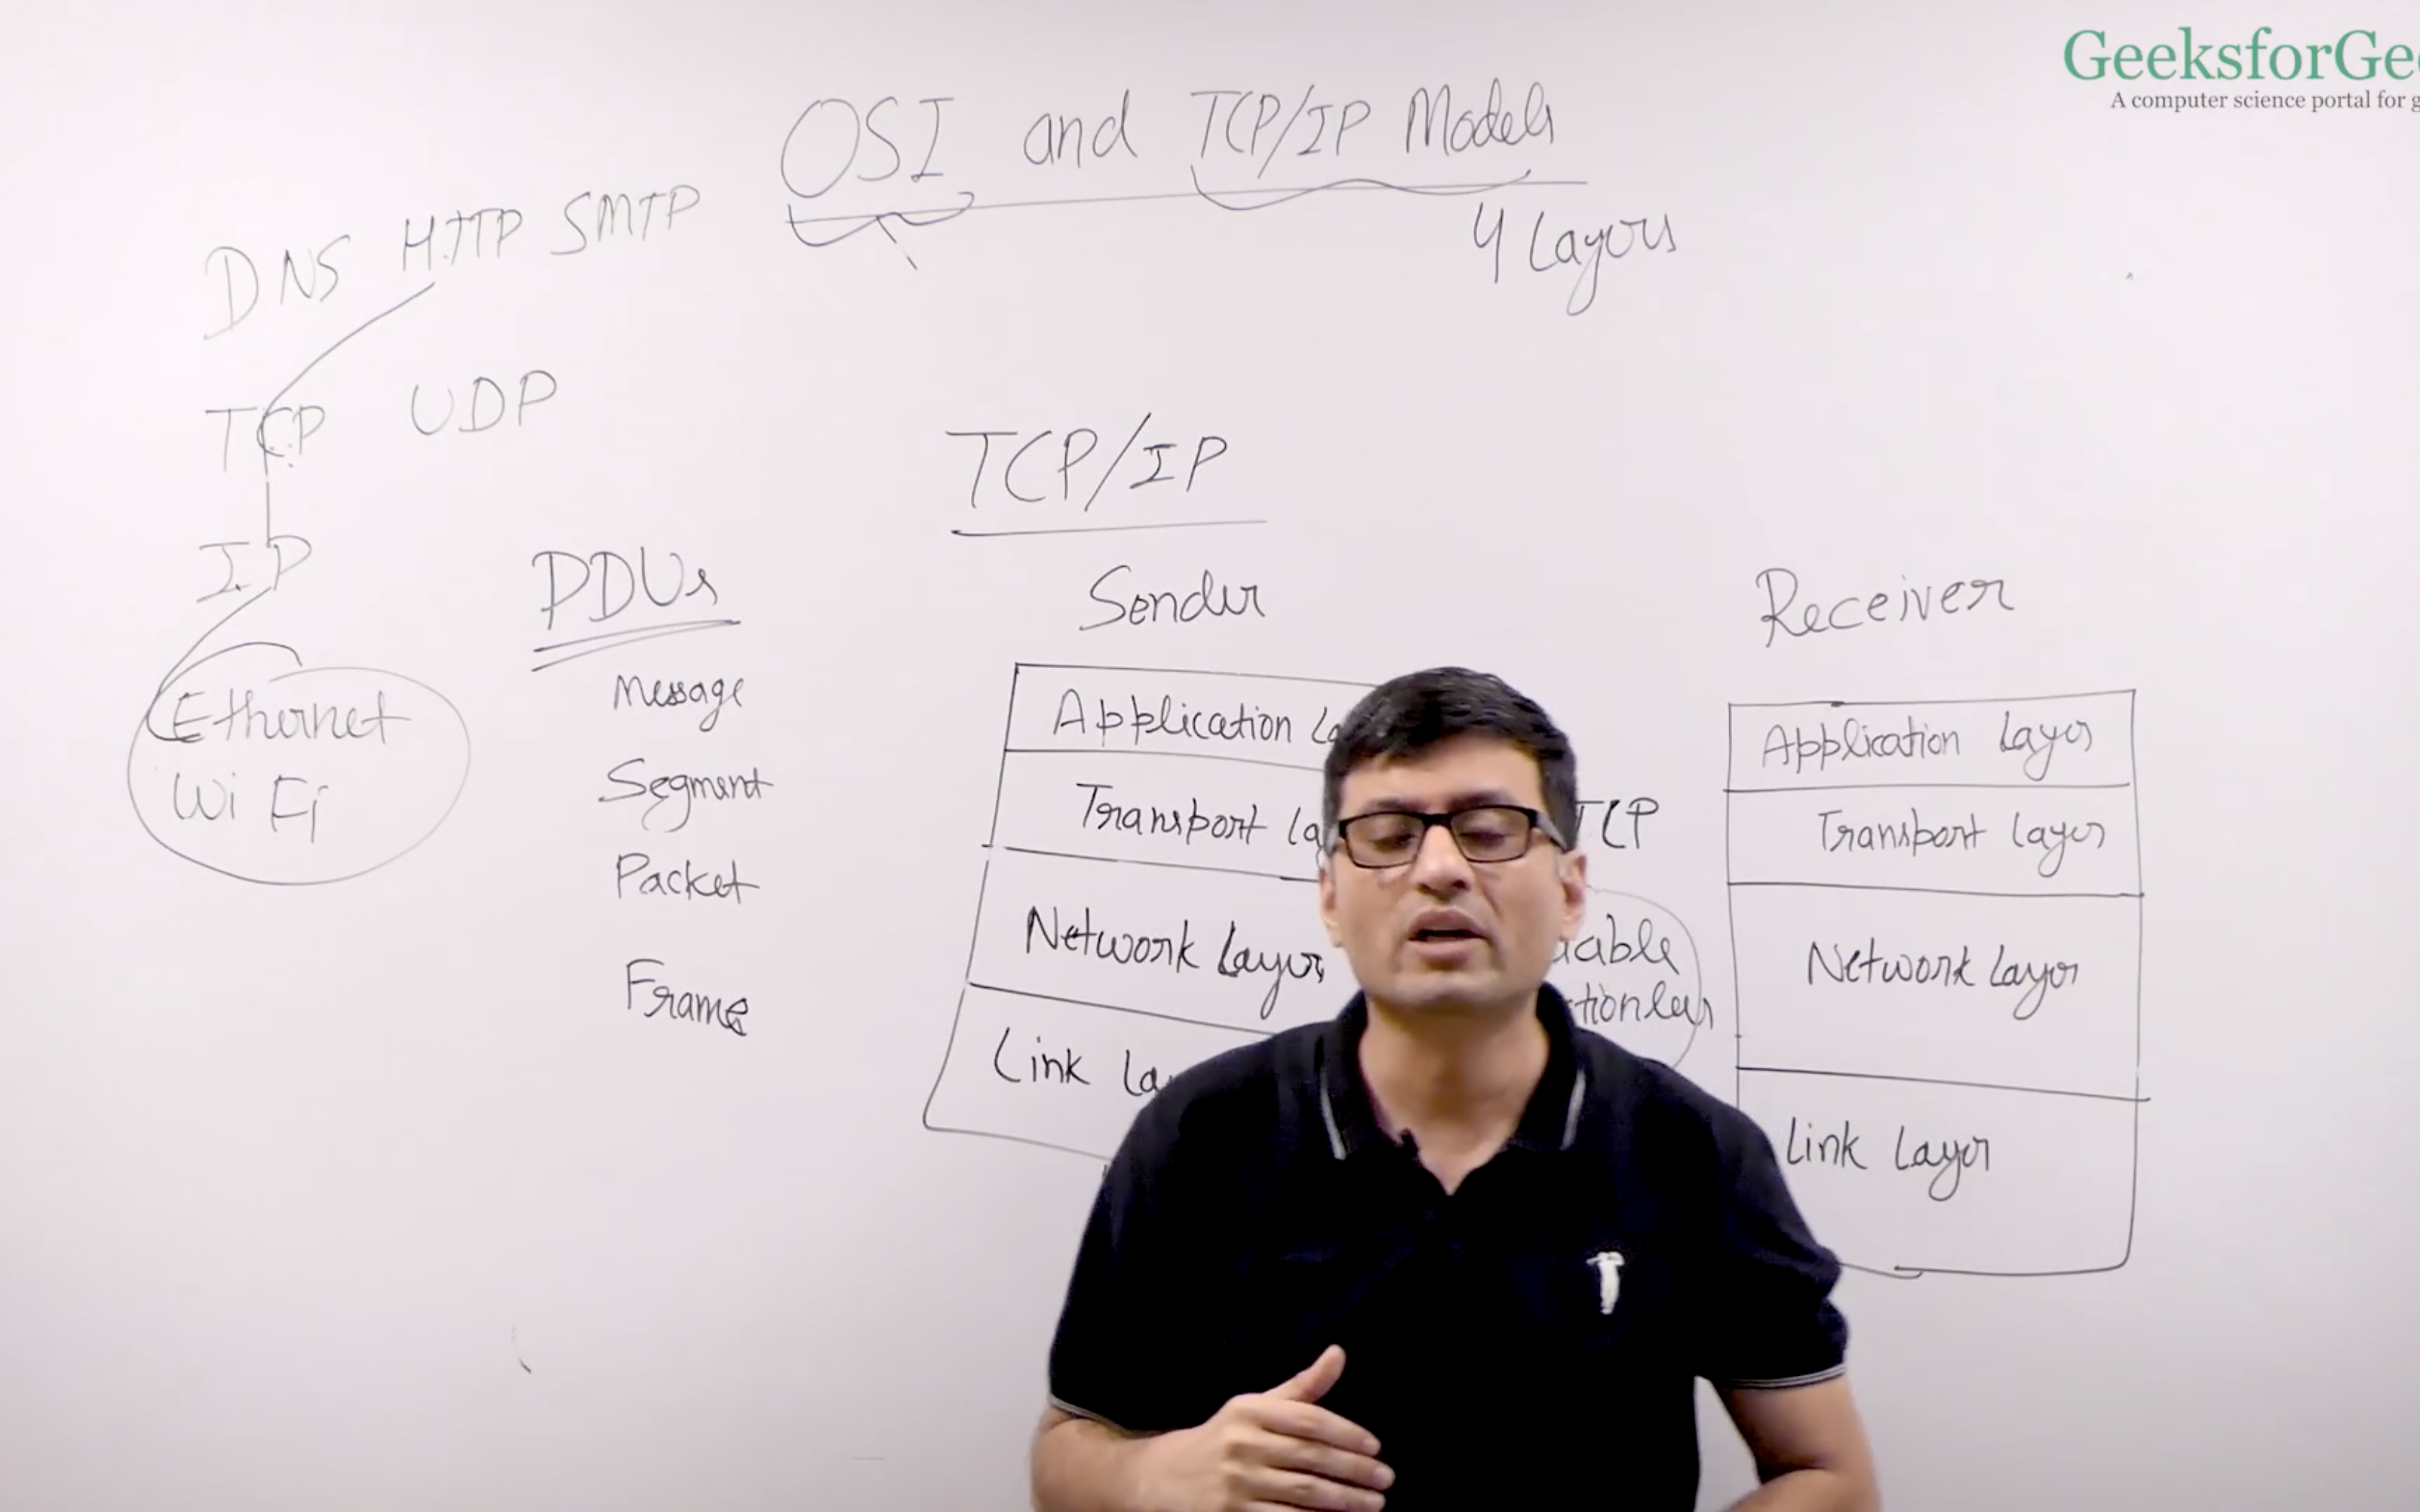 GeeksforGe
A computer science portal for g
OSI and TCP/IP Models
4 Layers
DNS HTTP SMTP
TCP UDP
IP
Ethernet
WiFi
PDUs
Message
Segment
Packet
Frame
TCP/IP
Sender
Application La
Transport La
Network Layer
Link La
TCP
able
tionless
Receiver
Application Layer
Transport Layer
Network Layer
Link Layer